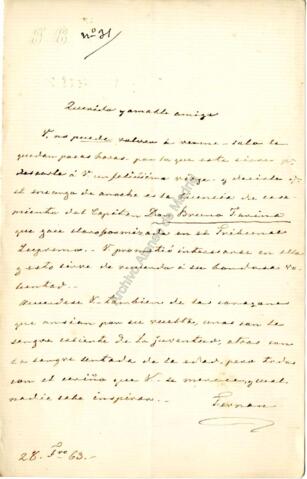 nº 31
Querido y amable amigo
V. no puede volver á verme - solo le
quedan pocas horas. por lo que este sirve pª
desearle á V. un felicísimo viage. y decirle qe
el encargo de anoche es la licencia de casa-
miento del Capitán Don Bruno Fariña
que yace en el Tribunal
Supremo. V. prometió interesarse en ella
y esto sirve de recuerdo á su bondosa vo-
luntad.
Acuerdese V. tambien de los corazones
que ansian por su vuelta, unos con la
sangre caliente de la juventud, otros con
la sangre de la edad, pero todos
con el cariño que V. se merece, y cual
nadie sabe inspirar.
Fernan
28. Fro 63.
Archivo Ateneo de Madrid